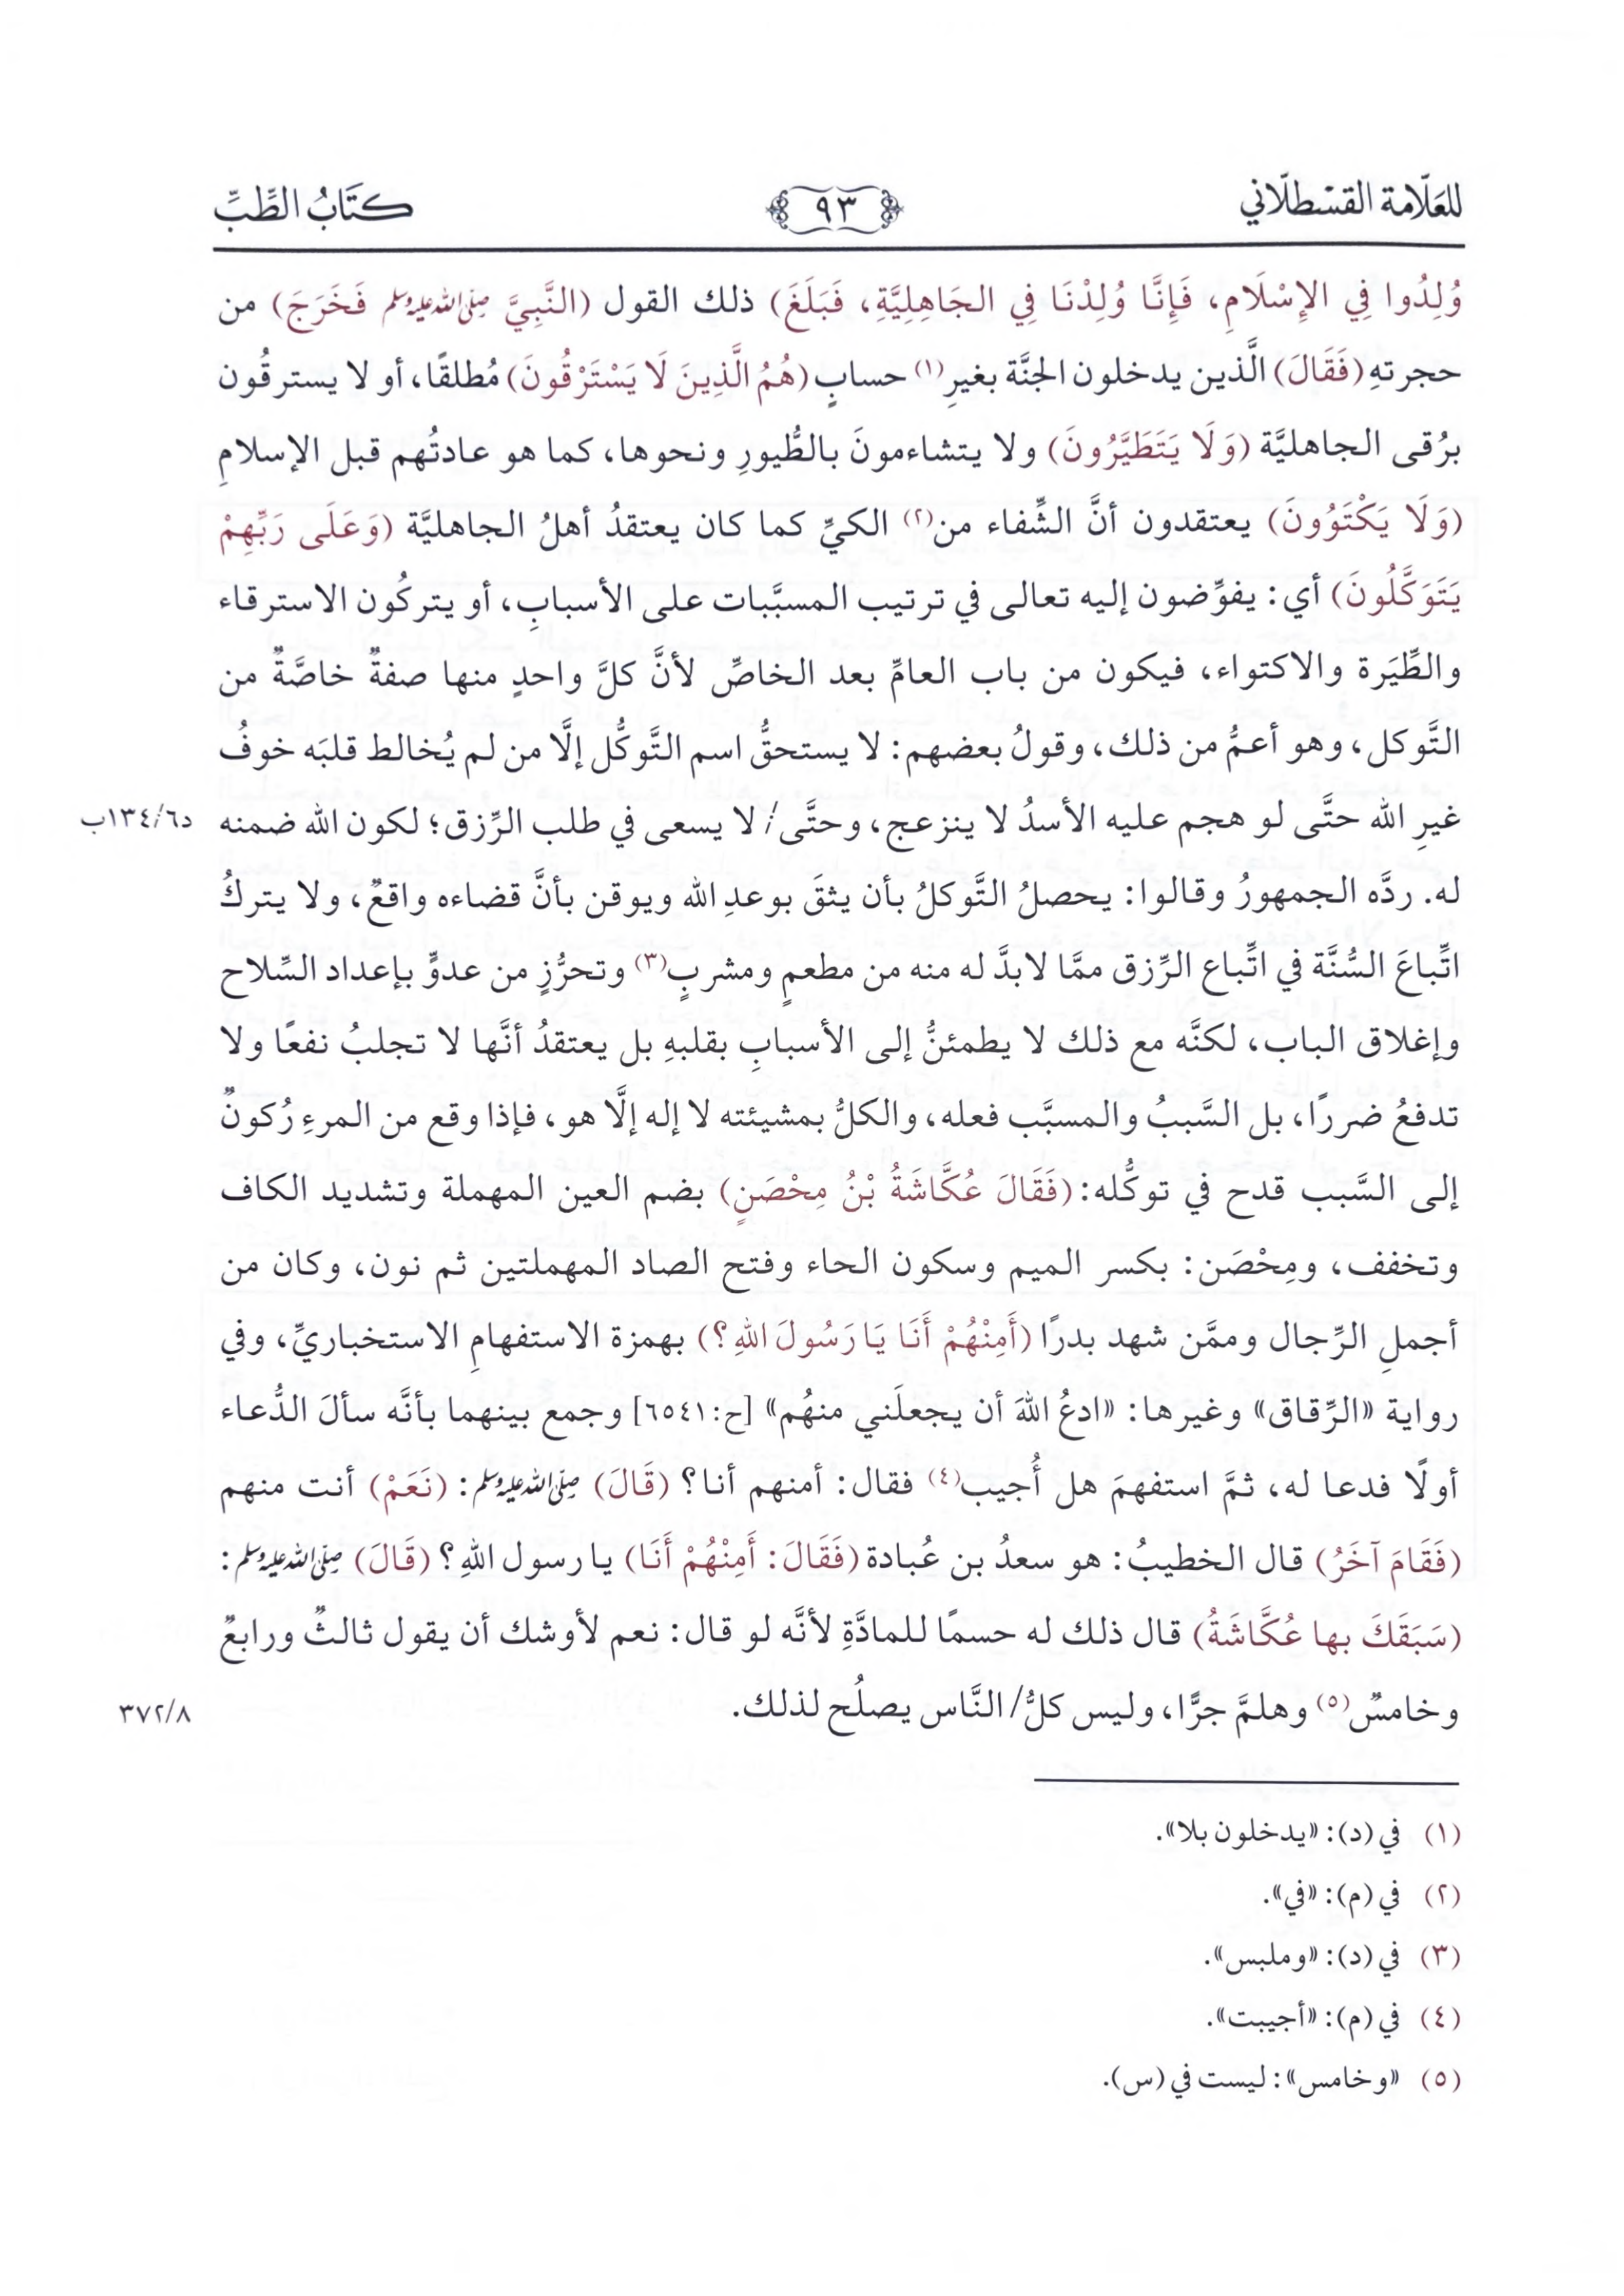 للعَلّامة القسْطلّاني
٩٣
كتَابُ الطِّبِّ
وُلِدُوا فِي الإِسْلَامِ، فَإِنَّا وُلِدْنَا فِي الجَاهِلِيَّةِ، فَبَلَغَ) ذلك القول (النَّبِيَّ صلى الله عليه وسلم فَخَرَجَ) من
حجرتهِ (فَقَالَ) الَّذين يدخلون الجنَّة بغيرِ(١) حسابٍ (هُمُ الَّذِينَ لَا يَسْتَرْقُونَ) مُطلقًا، أو لا يسترقُون
برُقى الجاهليَّة (وَلَا يَتَطَيَّرُونَ) ولا يتشاءمونَ بالطُّيورِ ونحوها، كما هو عادتُهم قبل الإسلامِ
(وَلَا يَكْتَوُونَ) يعتقدون أنَّ الشِّفاء من(٢) الكيِّ كما كان يعتقدُ أهلُ الجاهليَّة (وَعَلَى رَبِّهِمْ
يَتَوَكَّلُونَ) أي: يفوِّضون إليه تعالى في ترتيب المسبَّبات على الأسبابِ، أو يتركُون الاسترقاء
والطِّيَرة والاكتواء، فيكون من باب العامِّ بعد الخاصِّ لأنَّ كلَّ واحدٍ منها صفةٌ خاصَّةٌ من
التَّوكل، وهو أعمُّ من ذلك، وقولُ بعضهم: لا يستحقُّ اسم التَّوكُّل إلَّا من لم يُخالط قلبَه خوفُ
غيرِ الله حتَّى لو هجم عليه الأسدُ لا ينزعج، وحتَّى/ لا يسعى في طلب الرِّزق؛ لكون الله ضمنه
د١٣٤/٦ب
له. ردَّه الجمهورُ وقالوا: يحصلُ التَّوكلُ بأن يثقَ بوعدِ الله ويوقن بأنَّ قضاءه واقعٌ، ولا يتركُ
اتِّباعَ السُّنَّة في اتِّباع الرِّزق ممَّا لابدَّ له منه من مطعمٍ ومشربٍ(٣) وتحرُّزٍ من عدوٍّ بإعداد السِّلاح
وإغلاق الباب، لكنَّه مع ذلك لا يطمئنُّ إلى الأسبابِ بقلبهِ بل يعتقدُ أنَّها لا تجلبُ نفعًا ولا
تدفعُ ضررًا، بل السَّببُ والمسبَّب فعله، والكلُّ بمشيئته لا إله إلَّا هو، فإذا وقع من المرءِ رُكونٌ
إلى السَّبب قدح في توكُّله: (فَقَالَ عُكَّاشَةُ بْنُ مِحْصَنٍ) بضم العين المهملة وتشديد الكاف
وتخفف، ومِحْصَن: بكسر الميم وسكون الحاء وفتح الصاد المهملتين ثم نون، وكان من
أجملِ الرِّجال وممَّن شهد بدرًا (أَمِنْهُمْ أَنَا يَا رَسُولَ اللهِ؟) بهمزة الاستفهامِ الاستخباريِّ، وفي
رواية «الرِّقاق» وغيرها: «ادعُ اللهَ أن يجعلَني منهُم» [ح:٦٥٤١] وجمع بينهما بأنَّه سألَ الدُّعاء
أولًا فدعا له، ثمَّ استفهمَ هل أُجيب(٤) فقال: أمنهم أنا؟ (قَالَ) صلى الله عليه وسلم: (نَعَمْ) أنت منهم
(فَقَامَ آخَرُ) قال الخطيبُ: هو سعدُ بن عُبادة (فَقَالَ: أَمِنْهُمْ أَنَا) يا رسول اللهِ؟ (قَالَ) صلى الله عليه وسلم:
(سَبَقَكَ بها عُكَّاشَةُ) قال ذلك له حسمًا للمادَّةِ لأنَّه لو قال: نعم لأوشك أن يقول ثالثٌ ورابعٌ
وخامسٌ(٥) وهلمَّ جرًّا، وليس كلُّ/ النَّاس يصلُح لذلك.
٣٧٢/٨
(١) في (د): «يدخلون بلا».
(٢) في (م): «في».
(٣) في (د): «وملبس».
(٤) في (م): «أجيبت».
(٥) «وخامس»: ليست في (س).